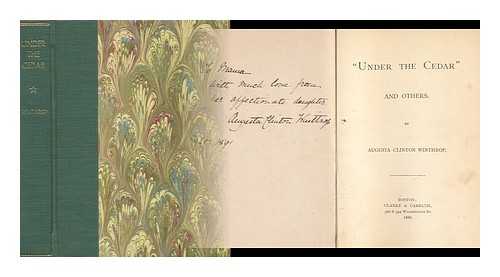 UNDER
THE
CEDAR
To Mama
with much love from
her affectionate daughter
Augusta Clinton Winthrop
1891
"UNDER THE CEDAR"
AND OTHERS.
BY
AUGUSTA CLINTON WINTHROP.
BOSTON:
CLARKE & CARRUTH,